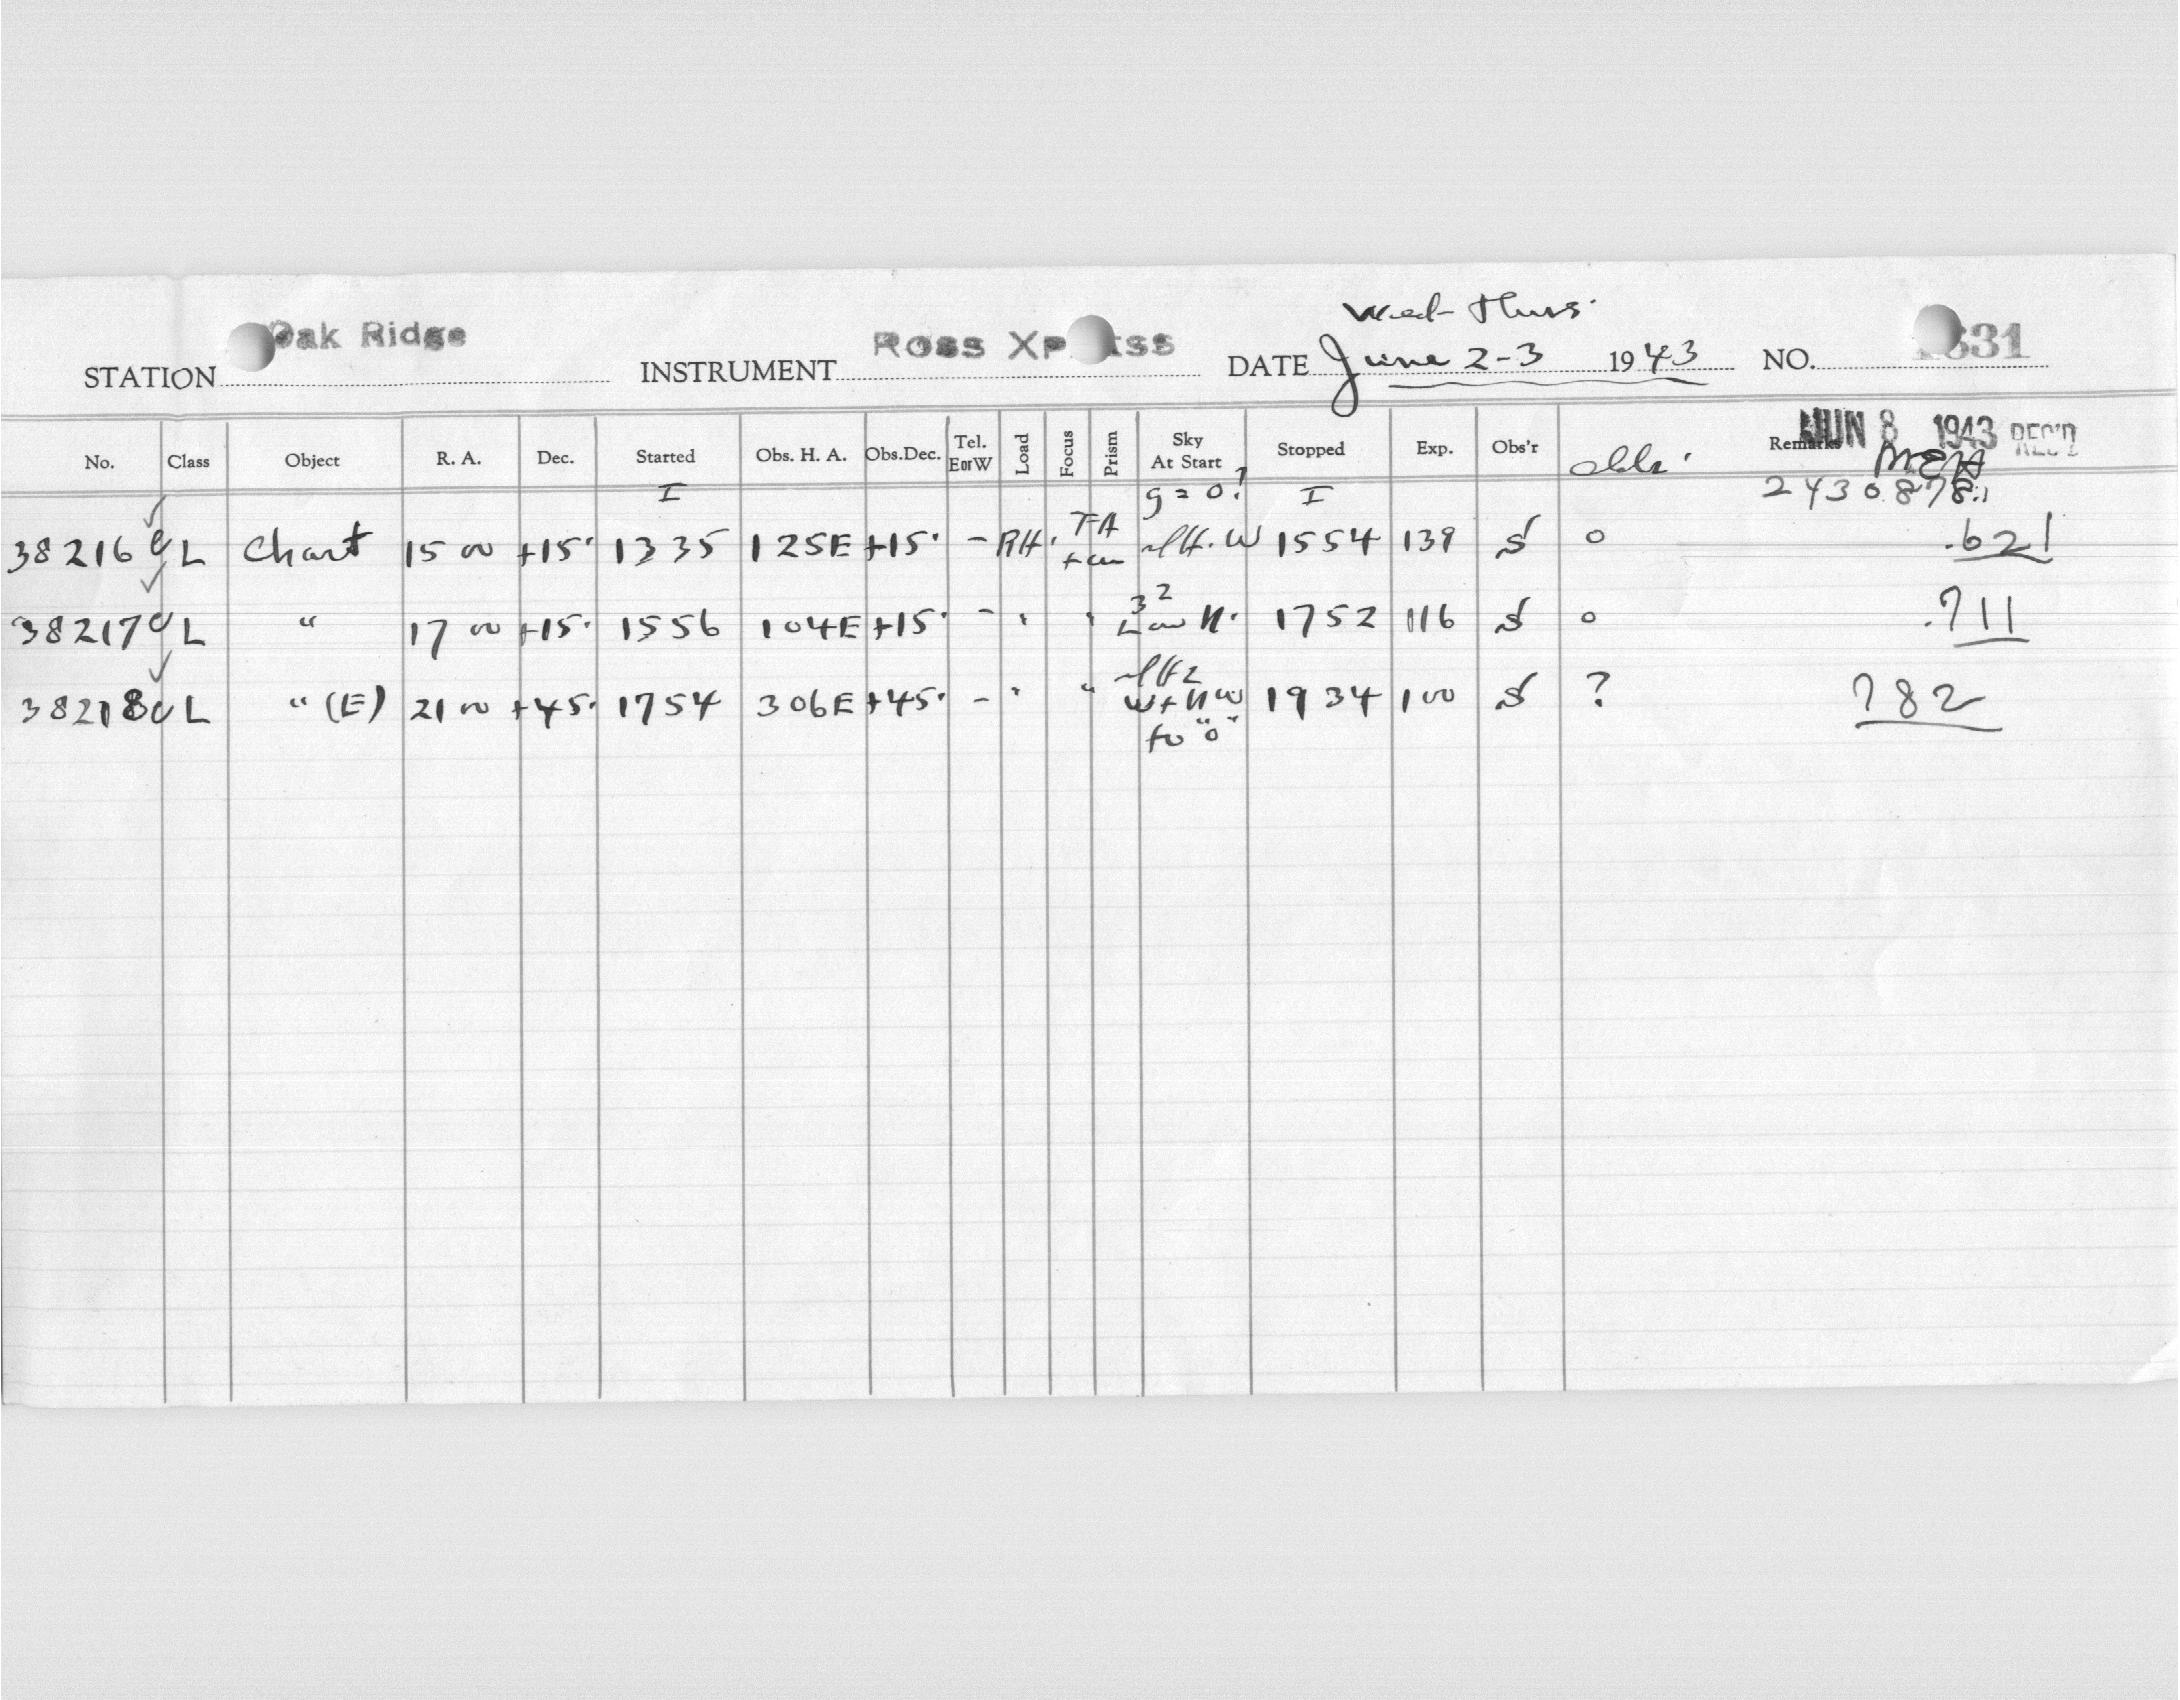 Wed-Thurs.
STATION Oak Ridge INSTRUMENT Ross Xpress DATE June 2-3 1943 NO. 631
JUN 8 1943 REC'D
No. Class Object R. A. Dec. Started Obs. H. A. Obs.Dec. Tel. E or W Load Focus Prism Sky At Start Stopped Exp. Obs'r Remarks
I g = 0? I 2430878.
38216 L Chart 15 00 +15° 1335 125E +15° - RH. FA W 1554 139 S 0 .621
38217 L " 17 00 +15° 1556 104E +15° - " " 32 Low N. 1752 116 S 0 .711
38218 L " (E) 21 00 +45° 1754 306E +45° - " " W + NW to "0" 1934 100 S ? 782